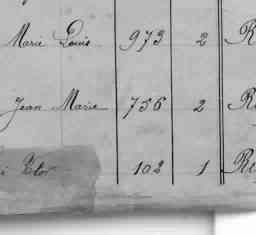 Marie Louis 973 2 R
Jean Marie 756 2 Re
Etor 102 1 Re